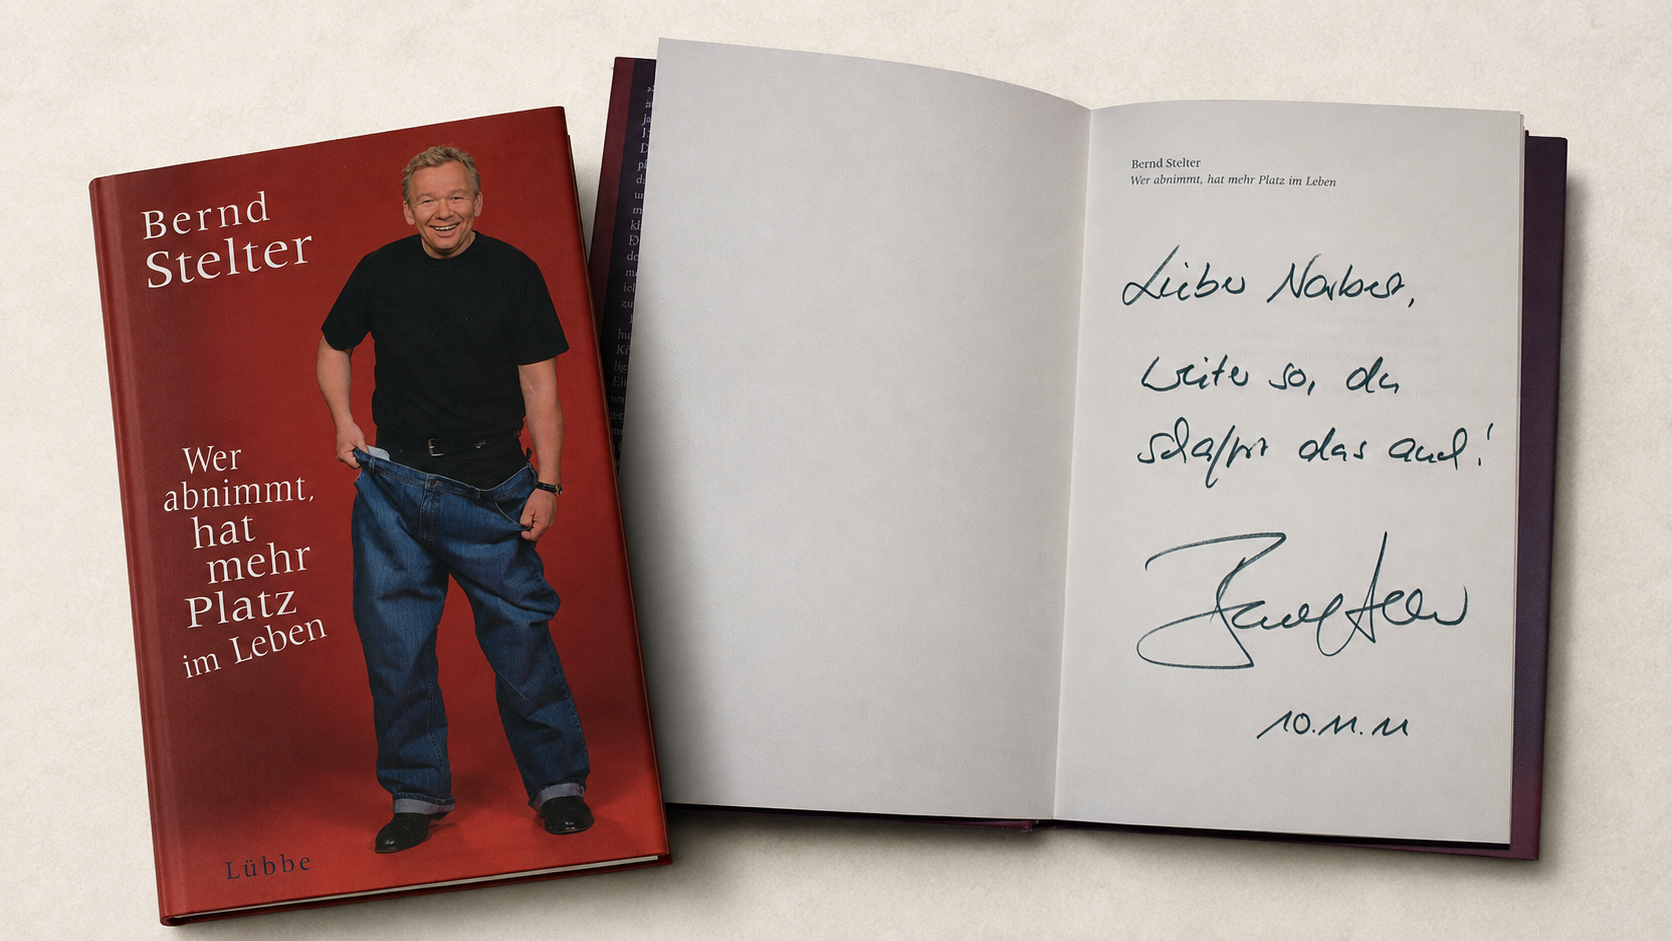 Bernd
Stelter
Wer
abnimmt,
hat
mehr
Platz
im Leben
Lübbe
Bernd Stelter
Wer abnimmt, hat mehr Platz im Leben
Lieber Norbert,
weiter so, du
schaffst das auch!
Bernd Stelter
10.11.11